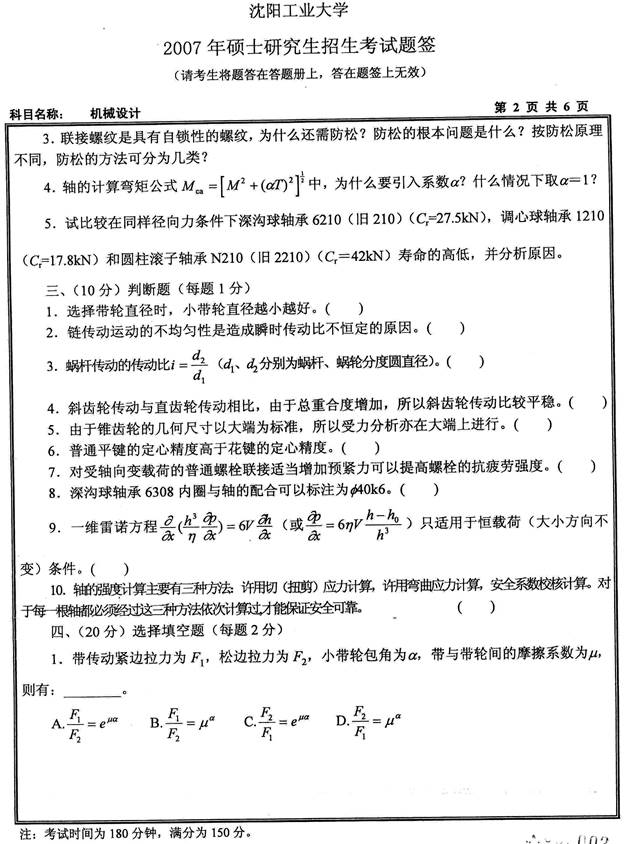 沈阳工业大学
2007 年硕士研究生招生考试题签
（请考生将题答在答题册上，答在题签上无效）
科目名称： 机械设计 第 2 页 共 6 页
3．联接螺纹是具有自锁性的螺纹，为什么还需防松？防松的根本问题是什么？按防松原理
不同，防松的方法可分为几类？
4．轴的计算弯矩公式 M_ca = [M² + (αT)²]^{1/2} 中，为什么要引入系数α？什么情况下取α＝1？
5．试比较在同样径向力条件下深沟球轴承 6210（旧 210）（C_r=27.5kN），调心球轴承 1210
（C_r=17.8kN）和圆柱滚子轴承 N210（旧 2210）（C_r＝42kN）寿命的高低，并分析原因。
三、（10 分）判断题（每题 1 分）
1．选择带轮直径时，小带轮直径越小越好。( )
2．链传动运动的不均匀性是造成瞬时传动比不恒定的原因。( )
3．蜗杆传动的传动比 i = d₂/d₁ （d₁、d₂分别为蜗杆、蜗轮分度圆直径）。( )
4．斜齿轮传动与直齿轮传动相比，由于总重合度增加，所以斜齿轮传动比较平稳。( )
5．由于锥齿轮的几何尺寸以大端为标准，所以受力分析亦在大端上进行。( )
6．普通平键的定心精度高于花键的定心精度。( )
7．对受轴向变载荷的普通螺栓联接适当增加预紧力可以提高螺栓的抗疲劳强度。( )
8．深沟球轴承 6308 内圈与轴的配合可以标注为ϕ40k6。( )
9．一维雷诺方程 ∂/∂x (h³/η ∂p/∂x) = 6V ∂h/∂x （或 ∂p/∂x = 6ηV (h−h₀)/h³ ）只适用于恒载荷（大小方向不
变）条件。( )
10. 轴的强度计算主要有三种方法：许用切（扭剪）应力计算，许用弯曲应力计算，安全系数校核计算。对
于每一根轴都必须经过这三种方法依次计算过,才能保证安全可靠。 ( )
四、（20 分）选择填空题（每题 2 分）
1．带传动紧边拉力为 F₁，松边拉力为 F₂，小带轮包角为α，带与带轮间的摩擦系数为μ，
则有：________。
A. F₁/F₂ = e^{μα} B. F₁/F₂ = μ^α C. F₂/F₁ = e^{μα} D. F₂/F₁ = μ^α
注：考试时间为 180 分钟，满分为 150 分。